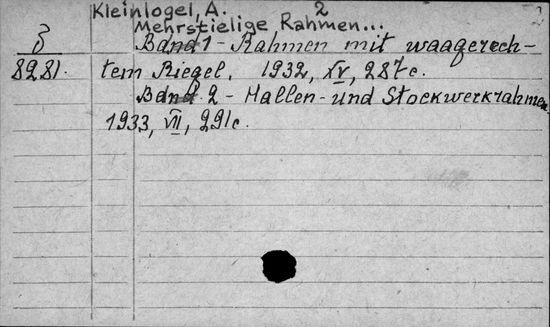 Kleinlogel, A. 2
Mehrstielige Rahmen...
Band 1 - Rahmen mit waagerech-
8281. tem Riegel. 1932, XV, 287c.
Band 2 - Hallen- und Stockwerkrahmen
1933, VII, 291c.